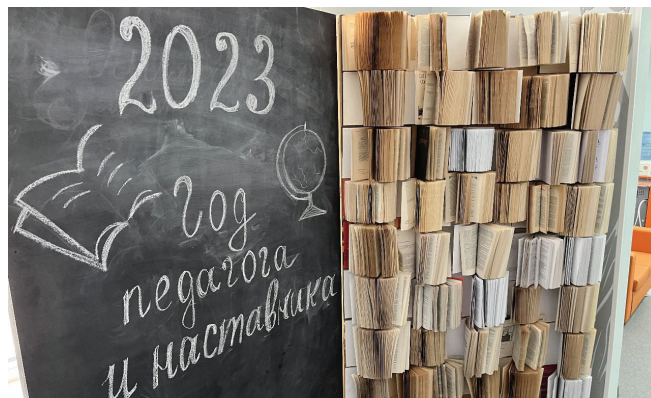 2023
Год
педагога
и наставника